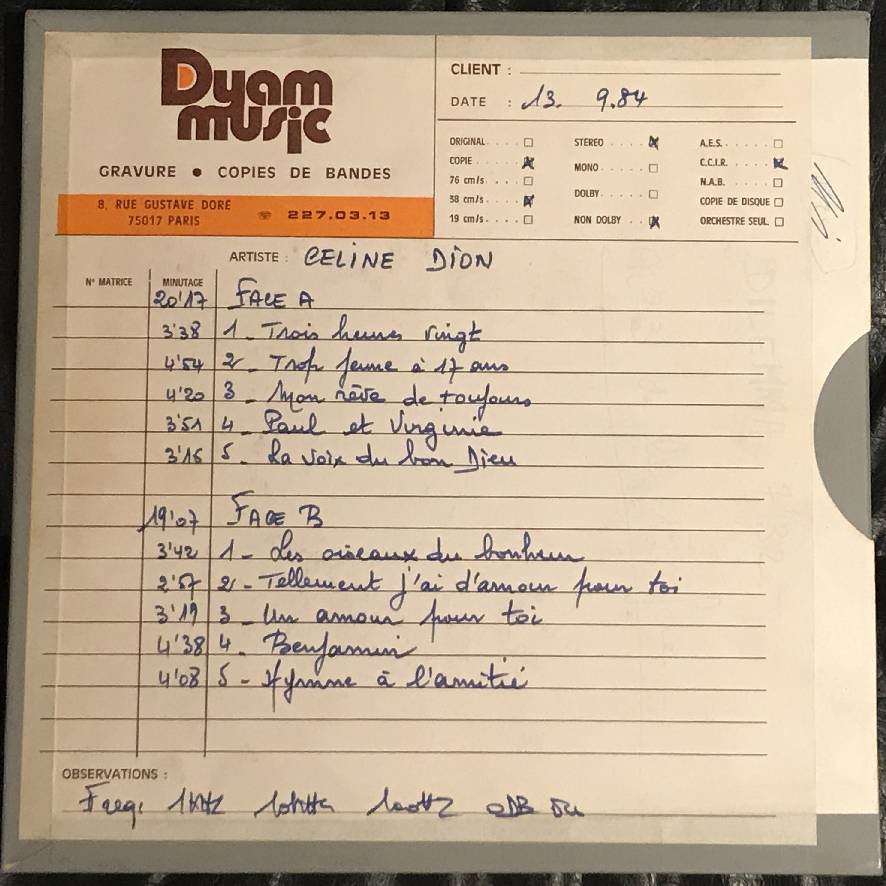 Dyam music
GRAVURE ● COPIES DE BANDES
8, RUE GUSTAVE DORÉ
75017 PARIS
☎ 227.03.13
CLIENT :
DATE : 13. 9.84
ORIGINAL . . . . ☐ STEREO . . . . ☒ A.E.S. . . . . . ☐
COPIE . . . . . ☒ MONO . . . . . ☐ C.C.I.R. . . . . ☒
76 cm/s . . . . ☐ DOLBY . . . . . ☐ N.A.B. . . . . . ☐
38 cm/s . . . . ☒ NON DOLBY . . ☒ COPIE DE DISQUE ☐
19 cm/s . . . . ☐ ORCHESTRE SEUL. ☐
ARTISTE : CELINE DION
N° MATRICE MINUTAGE
20'17 FACE A
3'38 1 - Trois heures vingt
4'54 2 - Trop jeune à 17 ans
4'20 3 - Mon rêve de toujours
3'51 4 - Paul et Virginie
3'16 5 - La voix du bon Dieu
19'07 FACE B
3'42 1 - Les oiseaux du bonheur
2'57 2 - Tellement j'ai d'amour pour toi
3'19 3 - Un amour pour toi
4'38 4 - Benjamin
4'08 5 - Hymne à l'amitié
OBSERVATIONS :
Freq. 1kHz 10kHz 100Hz 0DB